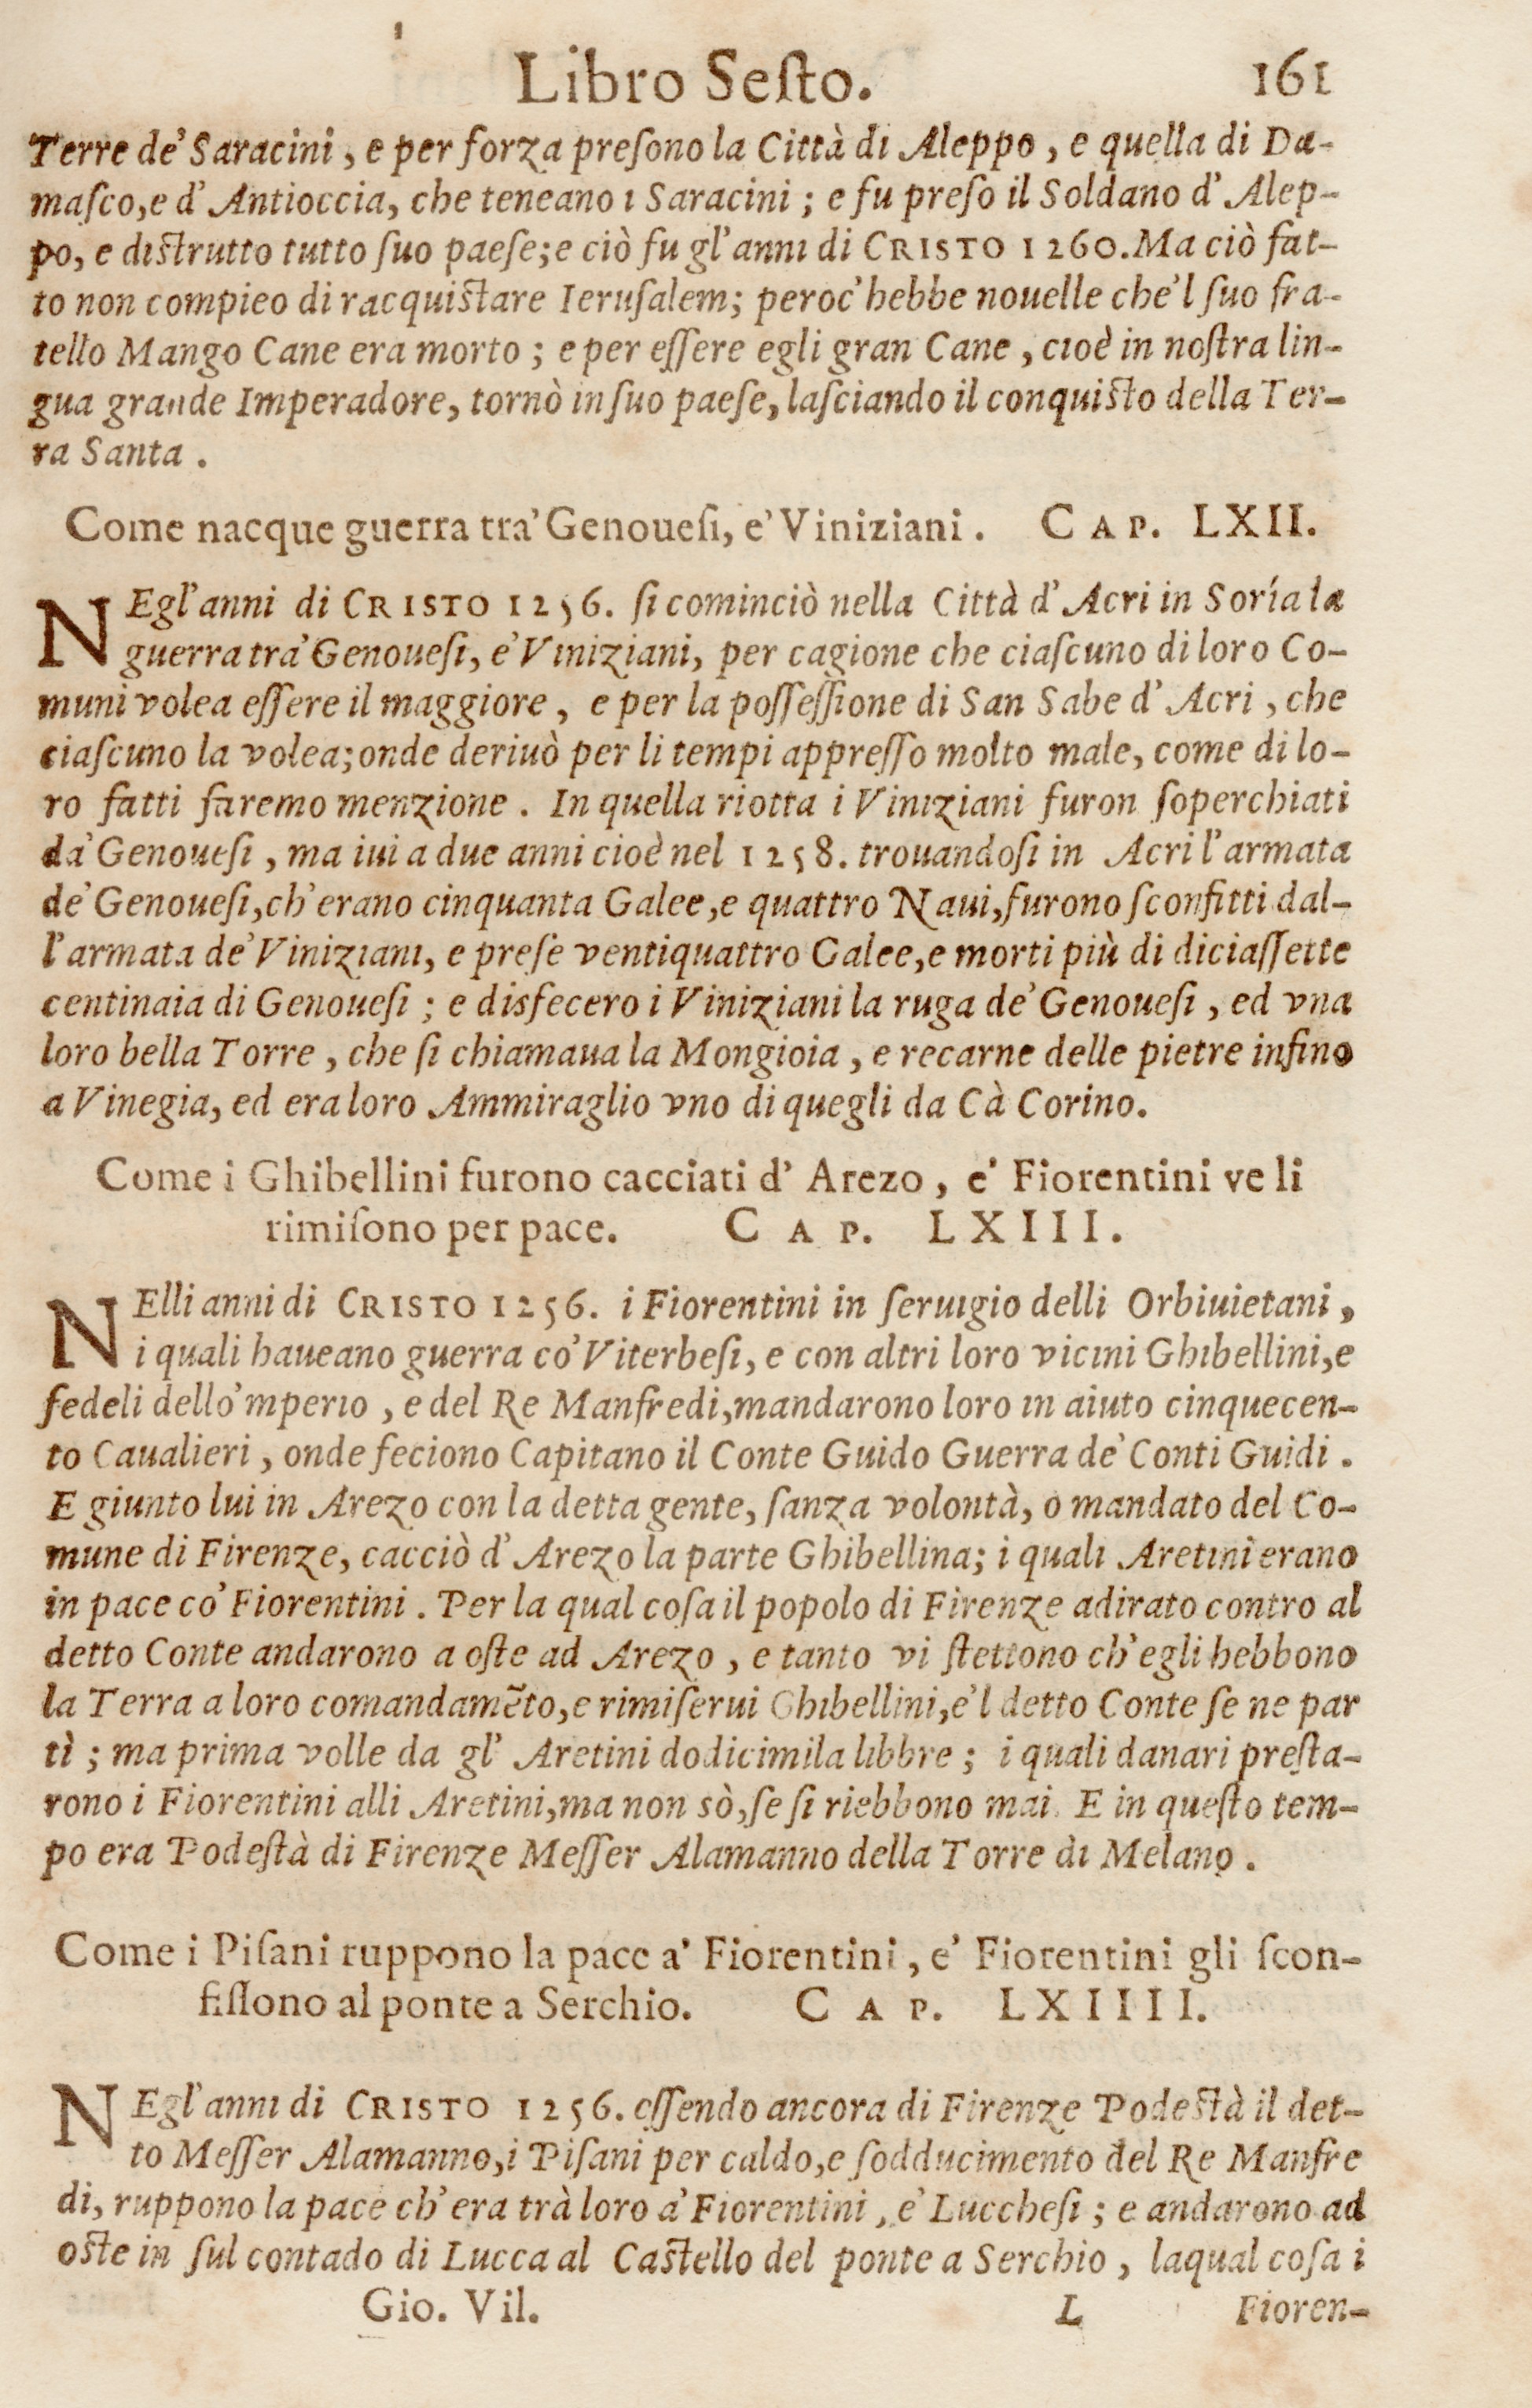 Libro Seſto. 161
Terre de' Saracini, e per forza preſono la Città di Aleppo, e quella di Da-
maſco, e d' Antioccia, che teneano i Saracini; e fu preſo il Soldano d' Alep-
po, e diſtrutto tutto ſuo paeſe; e ciò fu gl'anni di CRISTO 1260. Ma ciò fat-
to non compieo di racquiſtare Ieruſalem; peroc'hebbe nouelle che'l ſuo fra-
tello Mango Cane era morto; e per eſſere egli gran Cane, cioè in noſtra lin-
gua grande Imperadore, tornò in ſuo paeſe, laſciando il conquiſto della Ter-
ra Santa.
Come nacque guerra tra' Genoueſi, e' Viniziani. CAP. LXII.
NEgl'anni di CRISTO 1256. ſi cominciò nella Città d' Acri in Soría la
guerra tra' Genoueſi, e' Viniziani, per cagione che ciaſcuno di loro Co-
muni volea eſſere il maggiore, e per la poſſeſſione di San Sabe d' Acri, che
ciaſcuno la volea; onde deriuò per li tempi appreſſo molto male, come di lo-
ro fatti faremo menzione. In quella riotta i Viniziani furon ſoperchiati
da' Genoueſi, ma iui a due anni cioè nel 1258. trouandoſi in Acri l'armata
de' Genoueſi, ch'erano cinquanta Galee, e quattro Naui, furono ſconfitti dal-
l'armata de' Viniziani, e preſe ventiquattro Galee, e morti più di diciaſſette
centinaia di Genoueſi; e disfecero i Viniziani la ruga de' Genoueſi, ed vna
loro bella Torre, che ſi chiamaua la Mongioia, e recarne delle pietre infino
a Vinegia, ed era loro Ammiraglio vno di quegli da Cà Corino.
Come i Ghibellini furono cacciati d' Arezo, e' Fiorentini ve li
rimiſono per pace. CAP. LXIII.
NElli anni di CRISTO 1256. i Fiorentini in ſeruigio delli Orbiuietani,
i quali haueano guerra co' Viterbeſi, e con altri loro vicini Ghibellini, e
fedeli dello 'mperio, e del Re Manfredi, mandarono loro in aiuto cinquecen-
to Caualieri, onde feciono Capitano il Conte Guido Guerra de' Conti Guidi.
E giunto lui in Arezo con la detta gente, ſanza volontà, o mandato del Co-
mune di Firenze, cacciò d' Arezo la parte Ghibellina; i quali Aretini erano
in pace co' Fiorentini. Per la qual coſa il popolo di Firenze adirato contro al
detto Conte andarono a oſte ad Arezo, e tanto vi ſtettono ch'egli hebbono
la Terra a loro comandamẽto, e rimiſerui Ghibellini, e'l detto Conte ſe ne par
tì; ma prima volle da gl' Aretini dodicimila libbre; i quali danari preſta-
rono i Fiorentini alli Aretini, ma non sò, ſe ſi riebbono mai. E in queſto tem-
po era Podeſtà di Firenze Meſſer Alamanno della Torre di Melano.
Come i Piſani ruppono la pace a' Fiorentini, e' Fiorentini gli ſcon-
fiſſono al ponte a Serchio. CAP. LXIIII.
NEgl'anni di CRISTO 1256. eſſendo ancora di Firenze Podeſtà il det-
to Meſſer Alamanno, i Piſani per caldo, e ſodducimento del Re Manfre
di, ruppono la pace ch'era trà loro a' Fiorentini, e' Luccheſi; e andarono ad
oſte in ſul contado di Lucca al Caſtello del ponte a Serchio, laqual coſa i
Gio. Vil. L Fioren-